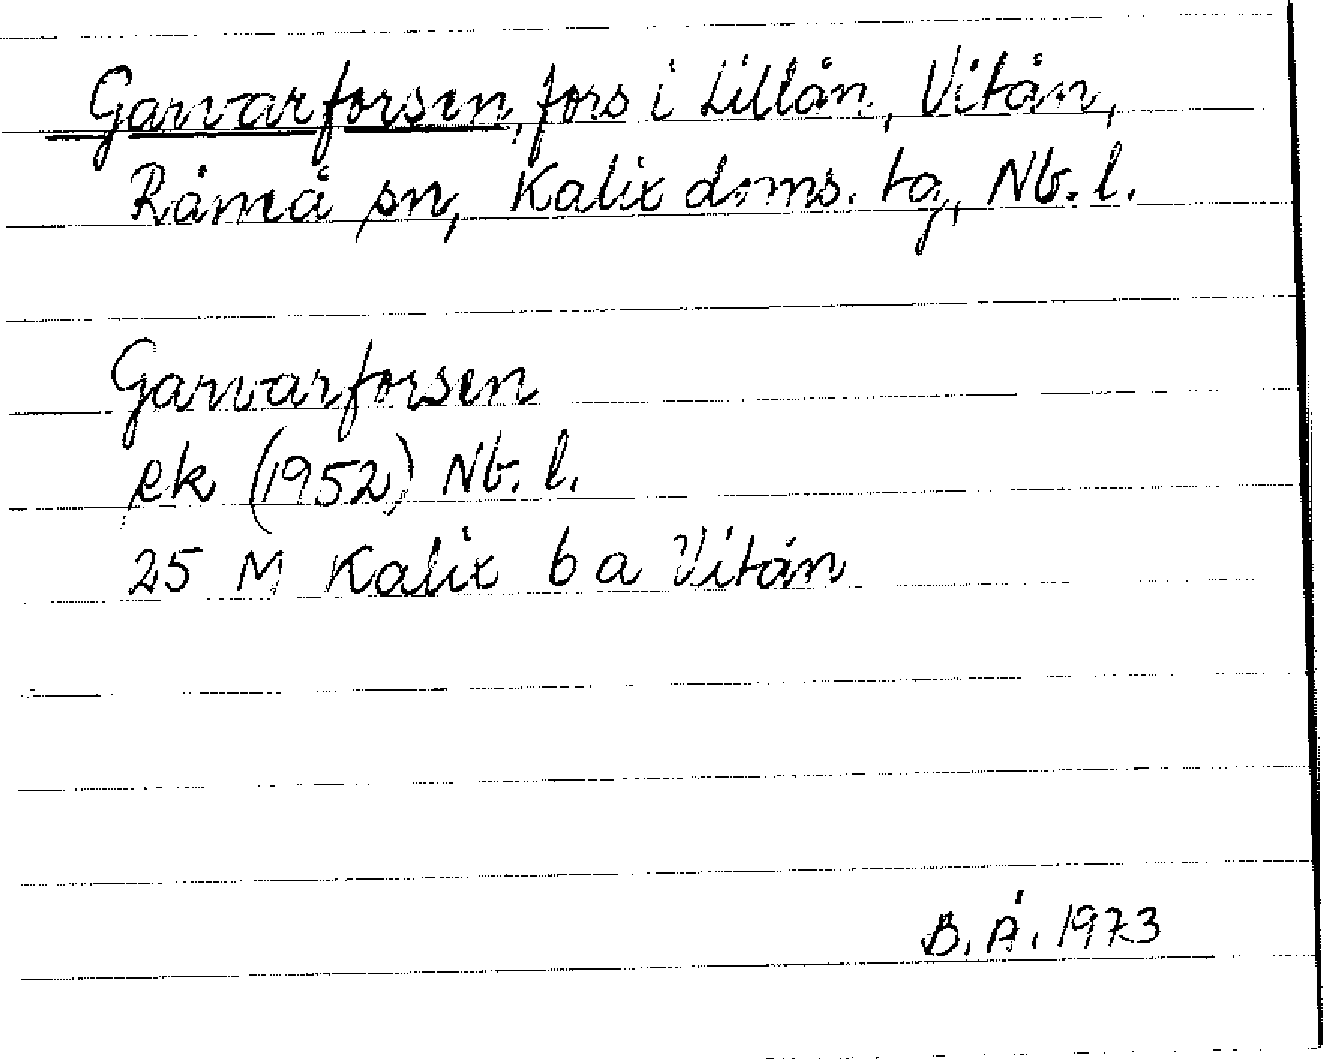 Garvarforsen, fors i Lillån, Vitån,
Råneå sn, Kalix doms. tg, Nb. l.
Garvarforsen
ek (1952) Nb. l.
25 M Kalix 6 a Vitån
B. Å. 1973